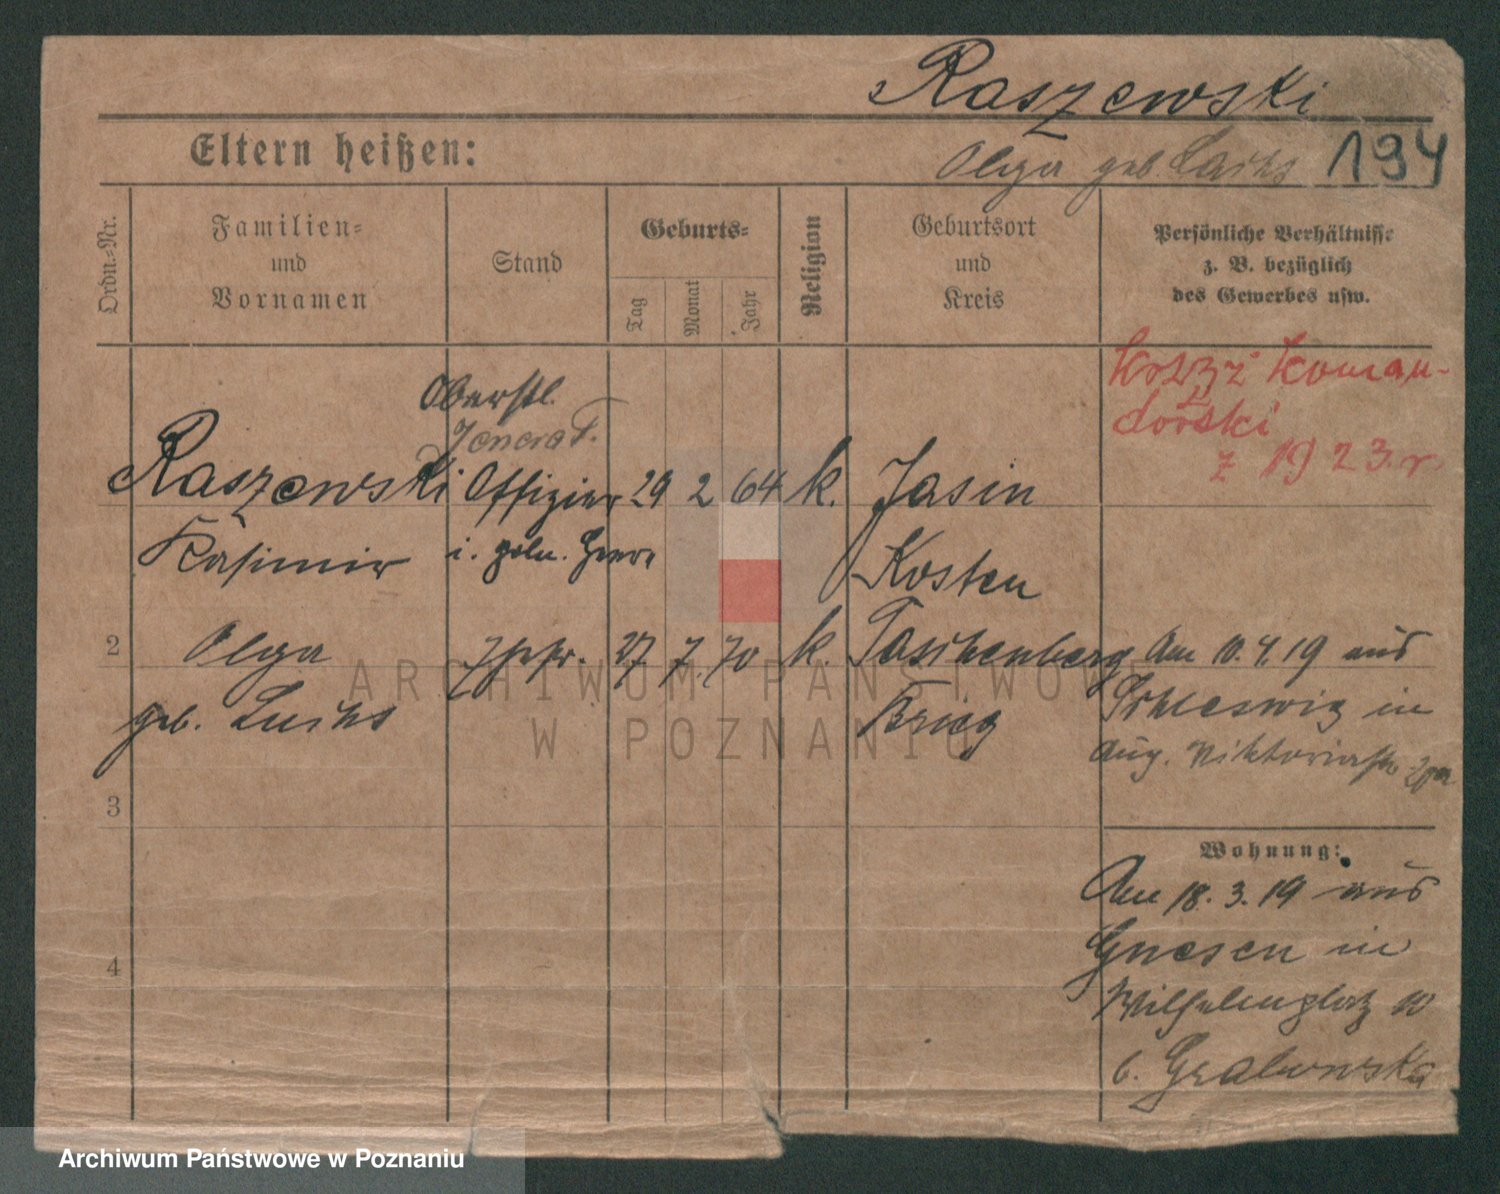 Raszewski
Eltern heißen:
Olga geb Luchs 194
Ordn.-Nr.
Familien-
und
Vornamen
Stand
Geburts-
Tag
Monat
Jahr
Religion
Geburtsort
und
Kreis
Persönliche Verhältnisse
z. B. bezüglich
des Gewerbes usw.
Krzyż Koman-
dorski
z 1923.r.
Oberstl.
General.
Raszewski Offizier 29 2 64 k. Jasin
Kasimir i. poln. Heere Kosten
2 Olga 27 7. 70 k. Taschenberg Am 10.4.19 aus
geb. Luchs Brieg Schleswig in
Aug. Viktoriastr
3
Wohnung:
Am 18.3.19 aus
Gnesen in
4
Wilhelmplatz 10
b. Grabowska
ARCHIWUM PAŃSTWOWE
W POZNANIU
Archiwum Państwowe w Poznaniu